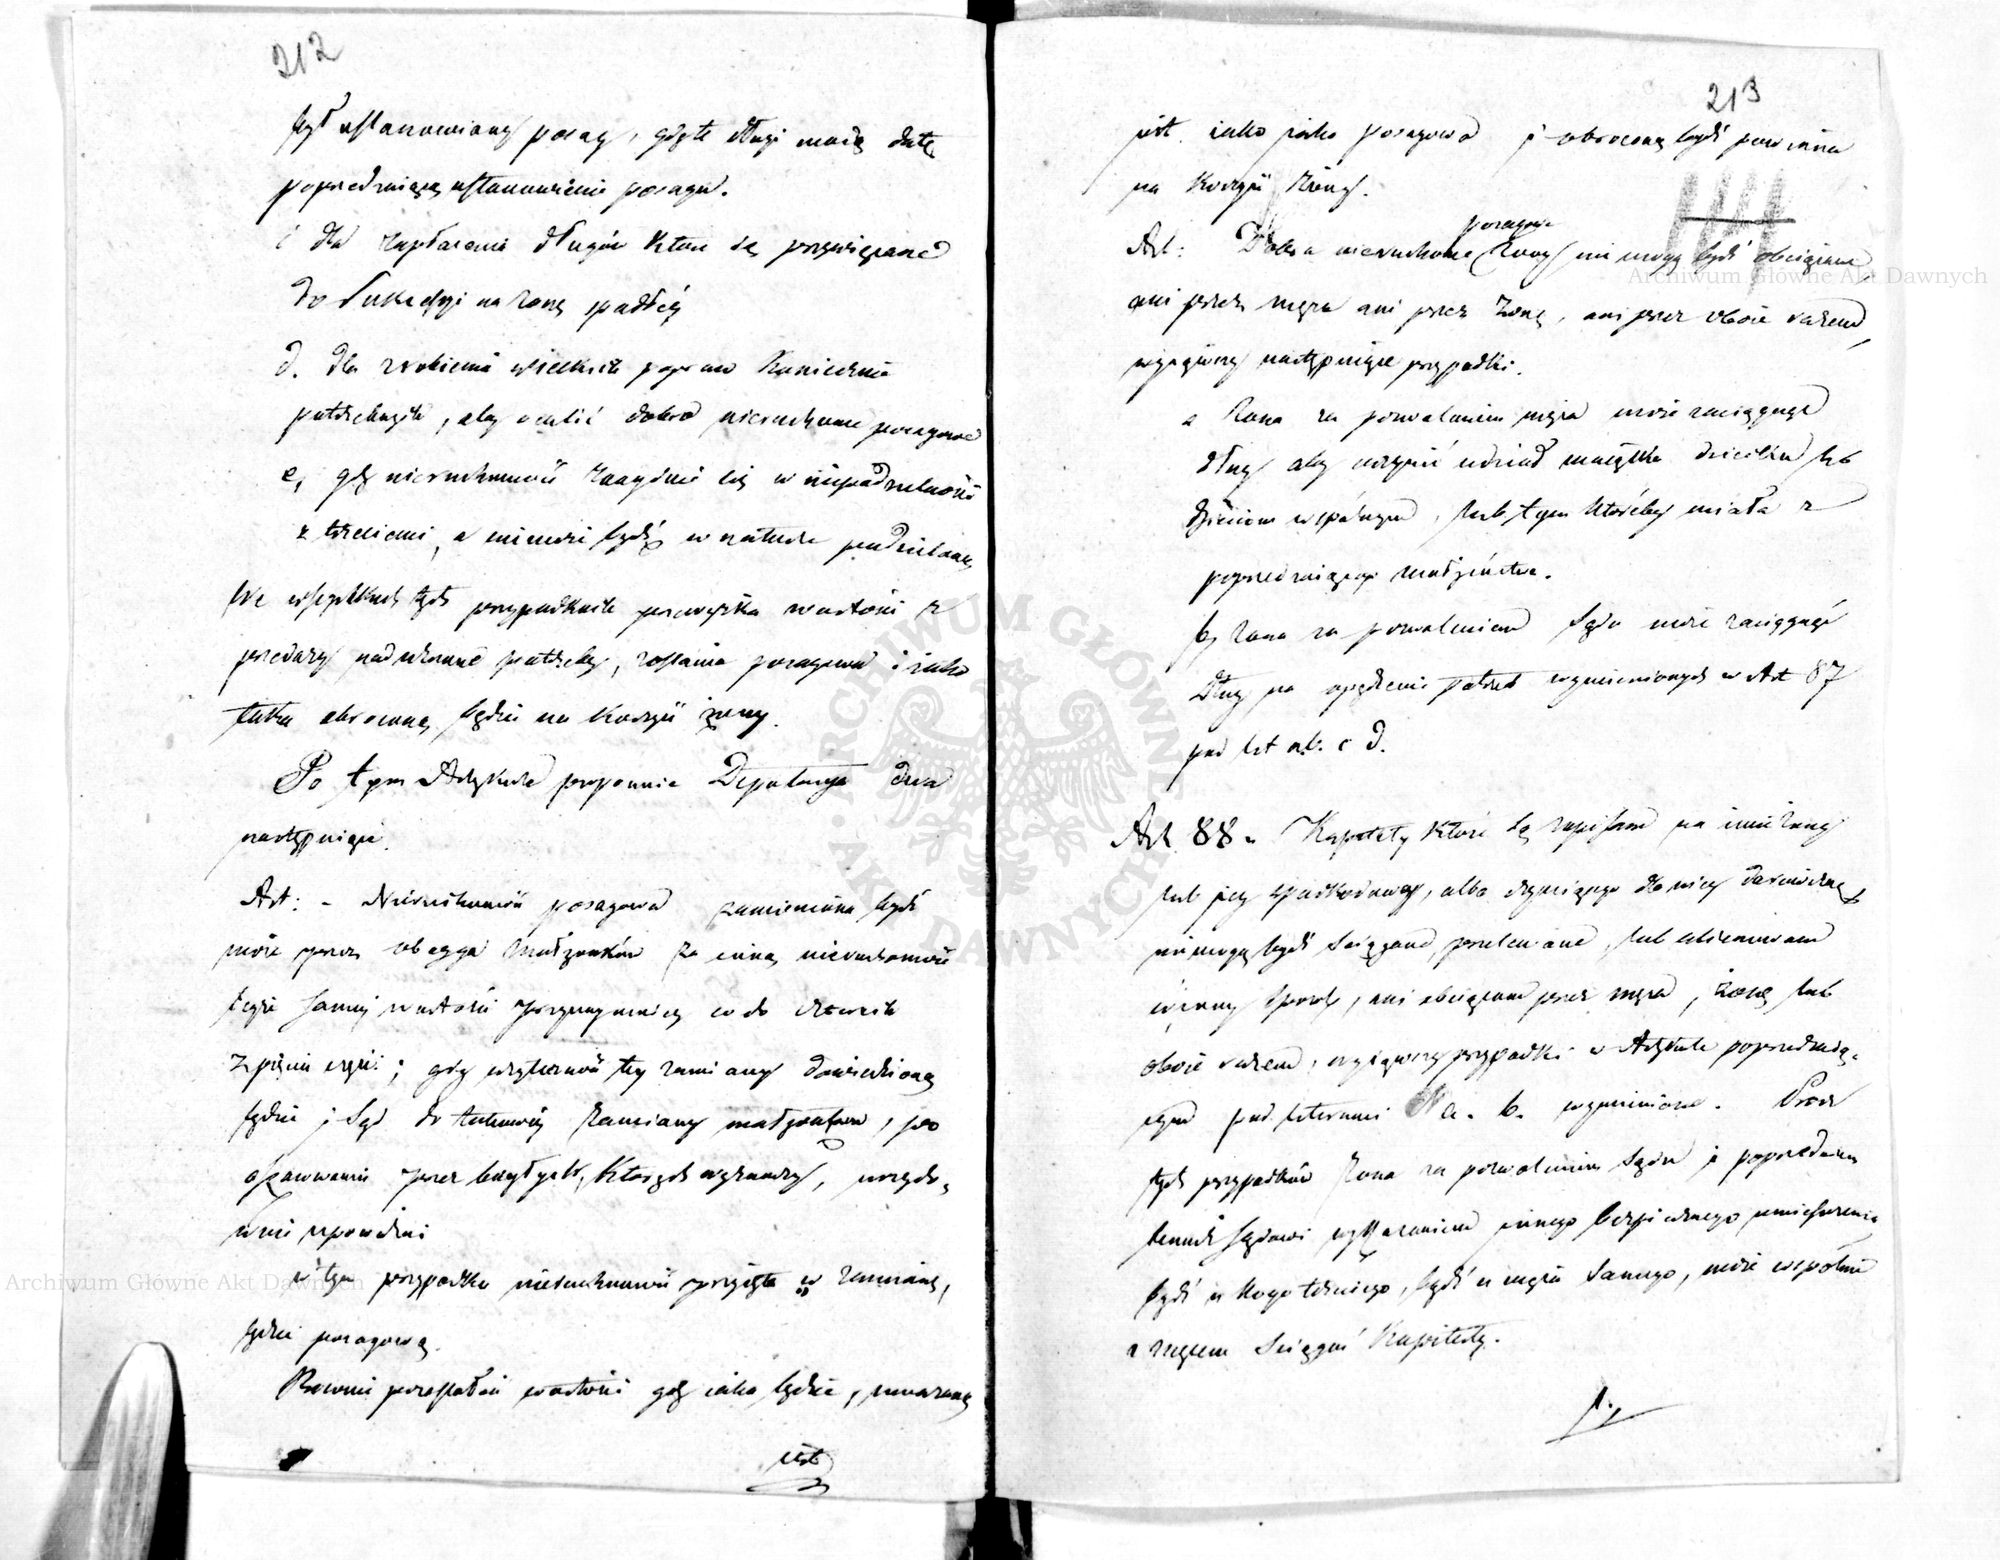 212
był ustanowiony posag, gdy te długi maią datę
poprzedzaiącą ustanowienie posagu.
dla zapłacenia długów które są przywiązane
do Sukcessyi na żonę spadłéy
d. dla zrobienia wielkich popraw koniecznie
potrzebnych, aby ocalić dobra nieruchome posagowe
e, gdy nieruchomość znayduie się w niepodzielności
z trzeciemi, a nie może bydź w naturze podzielona,
We wszystkich tych przypadkach przewyżka wartości z
przedaży nad uznane potrzeby, zostanie posagową i iako
taka obrócona będzie na korzyść żony.
Po tym Artykule proponuie Deputacya dwa
następuiące.
Art: - Nieruchomość posagowa zamieniona bydź
może przez obeyga małżonków za inną nieruchomość
teyże samey wartości przynaymniey co do czterech
z pięciu części; gdy użyteczność tey zamiany dowiedzioną
będzie i Sąd do takowéy zamiany małżonków, po
oszacowaniu przez biegłych, których wyznaczy, urzędo-
wnie upoważni
w tym przypadku nieruchomość przyięta w zamianę,
będzie posagową.
Równie pozostałość wartości gdy iaka będzie, uważaną
iest
213
iest iako posagowa i obroconą bydź powinna
na korzyść żony.
posagowe
Art: Dobra nieruchome żony nie mogą bydź obciążane
ani przez męża ani przez żonę, ani przez oboie razem,
wyiąwszy następuiące przypadki.
a żona za pozwoleniem męża może zaciągnąć
długi aby uczynić udział maiątku dziecku lub
dzieciom wspólnym, lub tym któréby miała z
poprzedzaiącego małżeństwa.
b, żona za pozwoleniem Sądu może zaciągnąć
długi na opędzenie potrzeb wymienionych w Art 87
pod lit a. b. c d.
Art 88. Kapitały które są zapisane na imie żony
lub jey spadkodawcy, albo czyniącego dla niey darowiznę,
nie mogą bydź ściągane, przelewane, lub
w inny sposób, ani obciążane przez męża, żonę lub
oboie razem, wyiąwszy przypadki w Artykule poprzedzaią-
cym pod literami a. b. wymienione. Prócz
tych przypadków żona za pozwoleniem Sądu i poprzedniem
Sądowi wykazaniem innego bezpiecznego umieszczenia
bądź u kogo trzeciego, bądź u męża samego, może wspólnie
z mężem ściągnąć kapitały.
Archiwum Główne Akt Dawnych
Archiwum Główne Akt Dawnych
ARCHIWUM GŁÓWNE AKT DAWNYCH